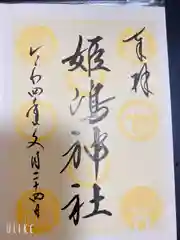 奉拝
姫嶋神社
令和四年文月二十四日
ULIKE